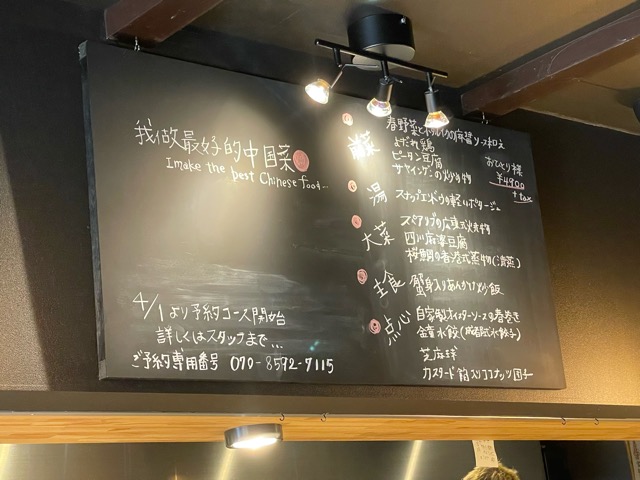 我做最好的中国菜
I make the best Chinese food...
4/1より予約コース開始
詳しくはスタッフまで…
ご予約専用番号 070-8592-7115
前菜 春野菜とホタルイカの麻醤ソース和え
よだれ鶏
ピータン豆腐
サヤインゲンの炒め物
おひとり様
¥4900
+tax
湯 スナップエンドウの軽いポタージュ
大菜 スペアリブの広東式焼き物
四川麻婆豆腐
桜鯛の香港式蒸し物(清蒸)
主食 蟹身入りあんかけ炒飯
点心 自家製オイスターソースの春巻き
水餃子
芝麻球
カスタード餡入りココナッツ団子